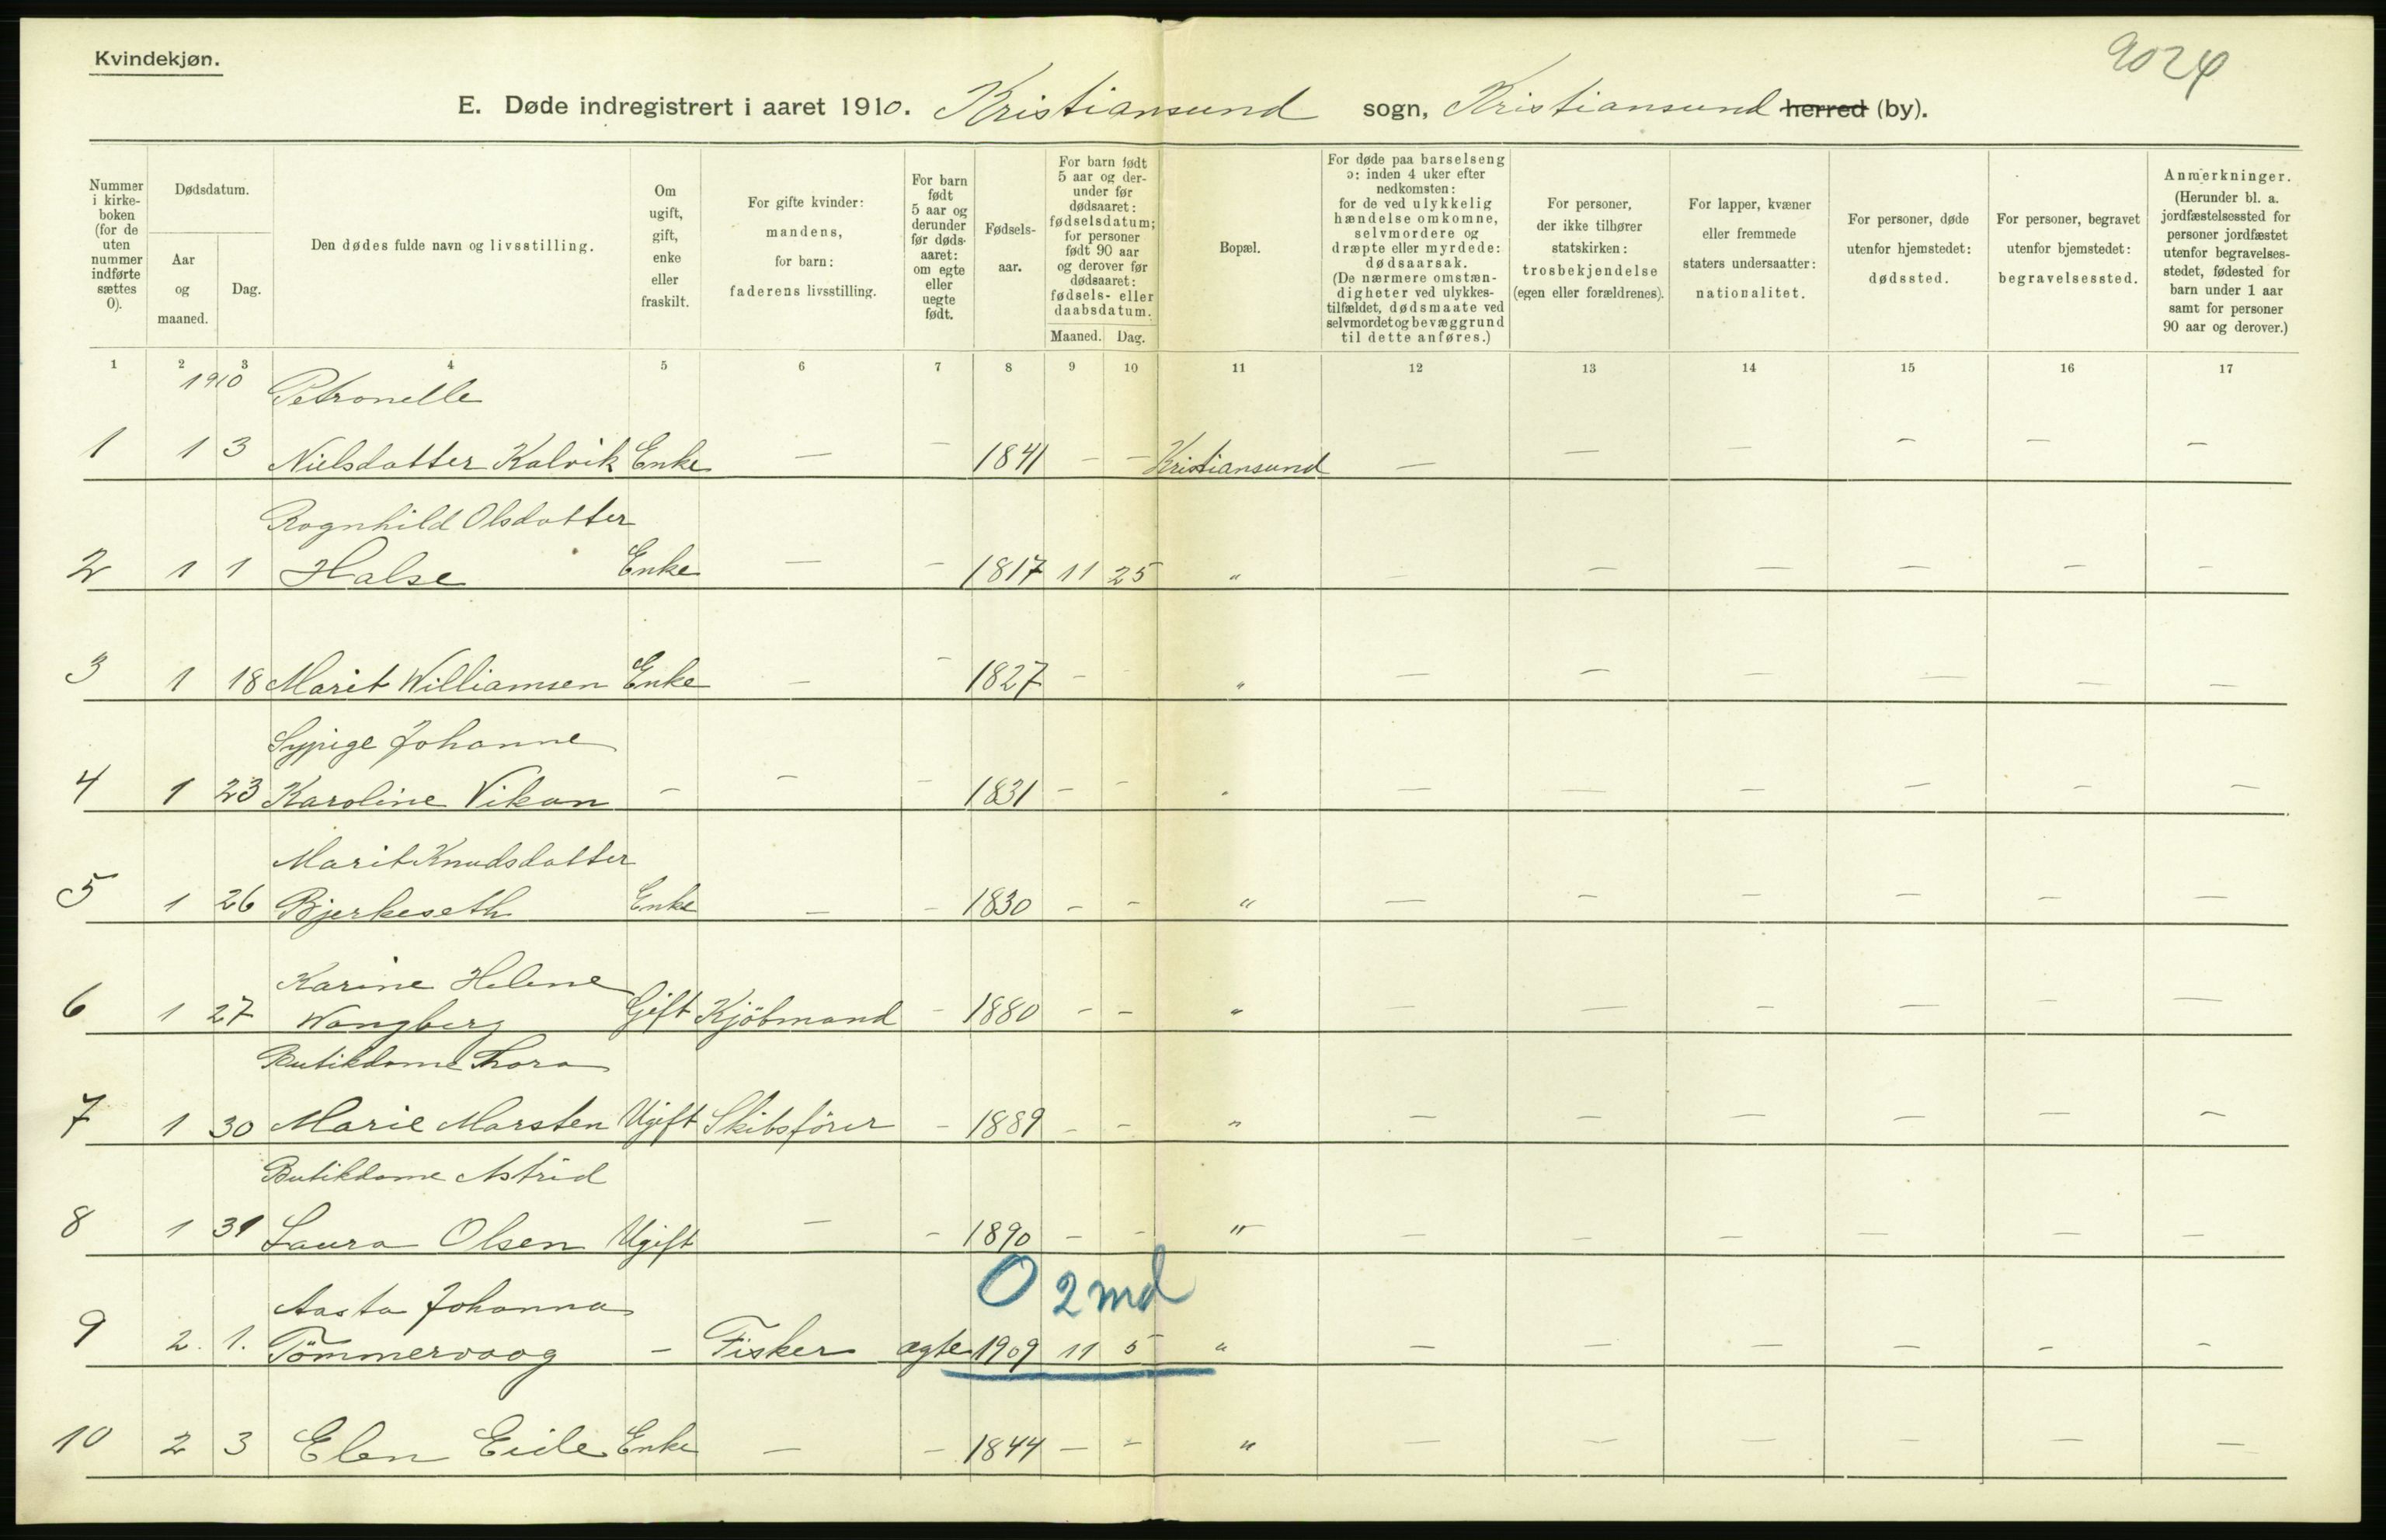 Kvindekjøn.
9024
E. Døde indregistrert i aaret 1910. Kristiansund sogn, Kristiansund herred (by).
Nummer i kirke- boken (for de uten nummer indførte sættes 0).
Dødsdatum.
Aar og maaned.
Dag.
Den dødes fulde navn og livsstilling.
Om ugift, gift, enke eller fraskilt.
For gifte kvinder: mandens, for barn: faderens livsstilling.
For barn født 5 aar og derunder før døds- aaret: om egte eller uegte født.
Fødsels- aar.
For barn født 5 aar og der- under før dødsaaret: fødselsdatum; for personer født 90 aar og derover før dødsaaret: fødsels- eller daabsdatum.
Maaned. Dag.
Bopæl.
For døde paa barselseng ɔ: inden 4 uker efter nedkomsten: for de ved ulykkelig hændelse omkomne, selvmordere og dræpte eller myrdede: dødsaarsak. (De nærmere omstæn- digheter ved ulykkes- tilfældet, dødsmaate ved selvmordet og bevæggrund til dette anføres.)
For personer, der ikke tilhører statskirken: trosbekjendelse (egen eller forældrenes).
For lapper, kvæner eller fremmede staters undersaatter: nationalitet.
For personer, døde utenfor hjemstedet: dødssted.
For personer, begravet utenfor hjemstedet: begravelsessted.
Anmerkninger. (Herunder bl. a. jordfæstelsessted for personer jordfæstet utenfor begravelses- stedet, fødested for barn under 1 aar samt for personer 90 aar og derover.)
1 2 3 4 5 6 7 8 9 10 11 12 13 14 15 16 17
1910 Petronelle
1 1 3 Nielsdatter Kalvik Enke — — 1841 — — Kristiansund — — — — — —
Ragnhild Olsdatter
2 1 1 Halse Enke — — 1817 11 25 " — — — — — —
3 1 18 Marit Williamsen Enke — — 1827 — — " — — — — — —
Sypige Johanne
4 1 23 Karoline Vikan — — — 1831 — — " — — — — — —
Marit Knudsdatter
5 1 26 Bjerkeseth Enke — — 1830 — — " — — — — — —
Karine Helene
6 1 27 Wangberg Gift Kjöbmand — 1880 — — " — — — — — —
Butikdame Thora
7 1 30 Marie Marsten Ugift Skibsförer — 1889 — — " — — — — — —
Butikdame Astrid
8 1 31 Laura Olsen Ugift — — 1890 — — " — — — — — —
0 2 md
Aasta Johanna
9 2. 1. Tömmervaag — Fisker ægte 1909 11 5 " — — — — — —
10 2 3 Elen Eide Enke — — 1844 — — " — — — — — —